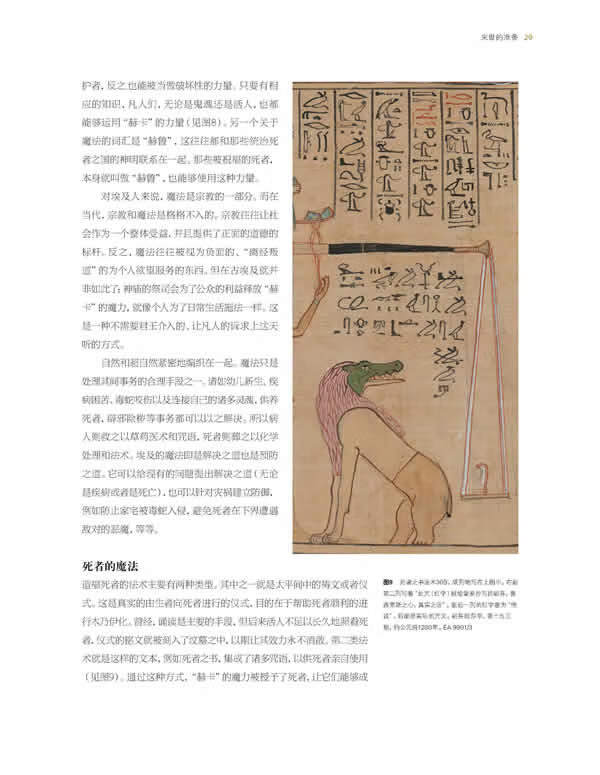 末世的准备 29
护者，反之也能被当做破坏性的力量。只要有相
应的知识，凡人们，无论是鬼魂还是活人，也都
能够运用“赫卡”的力量（见图8）。另一个关于
魔法的词汇是“赫鲁”，这往往都和那些统治死
者之国的神明联系在一起。那些被祝福的死者，
本身就叫做“赫鲁”，也能够使用这种力量。
对埃及人来说，魔法是宗教的一部分。而在
当代，宗教和魔法是格格不入的。宗教往往让社
会作为一个整体受益，并且提供了正面的道德的
标杆。反之，魔法往往被视为负面的、“离经叛
道”的为个人欲望服务的东西。但在古埃及就并
非如此了；神庙的祭司会为了公众的利益释放“赫
卡”的魔力，就像个人为了日常生活施法一样。这
是一种不需要君王介入的、让凡人的诉求上达天
听的方式。
自然和超自然紧密地编织在一起。魔法只是
处理其间事务的合理手段之一。诸如幼儿新生、疾
病困苦、毒蛇咬伤以及连接自己的诸多灵魂，供养
死者，辟邪除秽等事务都可以以之解决。所以病
人则救之以草药医术和咒语，死者则葬之以化学
处理和法术。埃及的魔法即是解决之道也是预防
之道。它可以给现有的问题提出解决之道（无论
是疾病或者是死亡），也可以针对灾祸建立防御，
例如防止家宅被毒蛇入侵，避免死者在下界遭遇
敌对的恶魔，等等。
死者的魔法
造福死者的法术主要有两种类型。其中之一就是太平间中的祷文或者仪
式。这是真实的由生者向死者进行的仪式，目的在于帮助死者顺利的进
行木乃伊化。曾经，诵读是主要的手段，但后来活人不足以长久地照着死
者，仪式的铭文就被刻入了坟墓之中，以期让其效力永不消散。第二类法
术就是这样的文本，例如死者之书，集成了诸多咒语，以供死者亲自使用
（见图9）。通过这种方式，“赫卡”的魔力被授予了死者，让它们能够成
图9
约公元前1280年。EA 9901/3